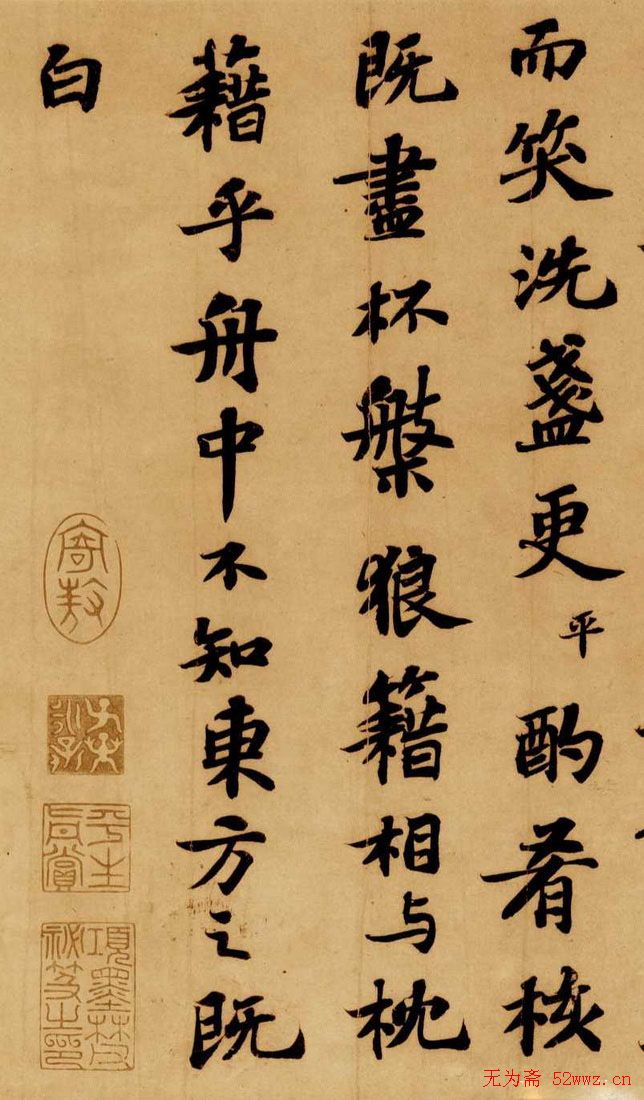 而笑洗盞更平酌肴核
既盡杯槃狼籍相与枕
藉乎舟中不知東方之既
白
平生真賞
項墨林父祕笈之印
无为斋 52wwz.cn